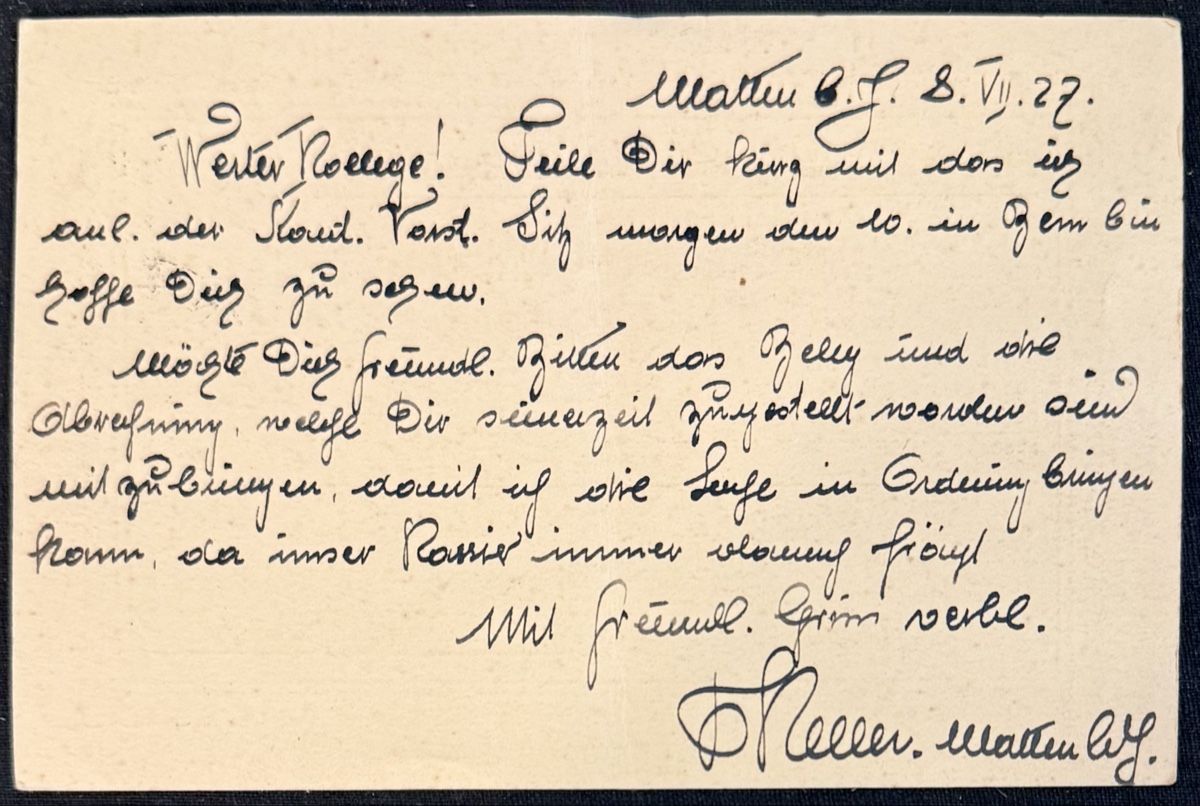 Matten b. J. 8. VII. 27.
Werter Kollege! Teile Dir kurz mit das ich
anl. der Kant. Vorst. Sitz morgen den 10. in Bern bin
hoffe Dich zu sehen.
Möchte Dich freundl. Bitten das Beleg und die
Abrechnung, welche Dir seinerzeit zugestellt worden sind
mitzubringen, damit ich die Sache in Ordnung bringen
kann, da unser Kassier immer darnach frägt
Mit freundl. Gruss verbl.
Keller. Matten b/J.